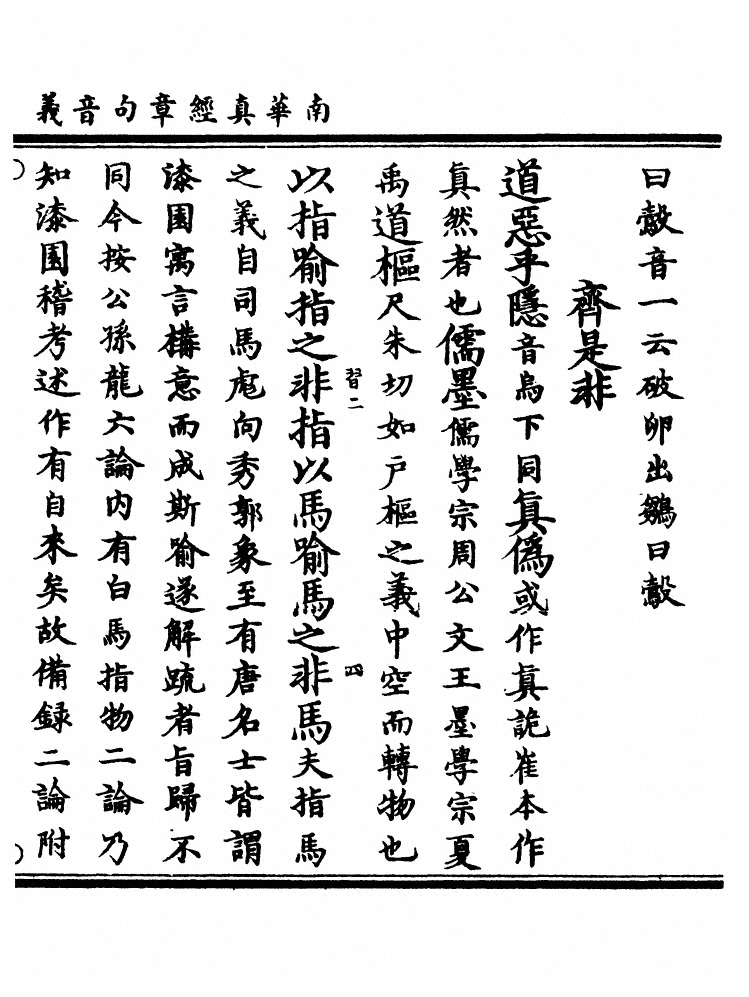 南華真經章句音義
曰鷇音一云破卵出鶵曰鷇
齊是非
道惡乎隱音烏下同真僞或作真詭崔本作
真然者也儒墨儒學宗周公文王墨學宗夏
禹道樞尺朱切如户樞之義中空而轉物也
以指喻指之非指以馬喻馬之非馬夫指馬
習二
四
之義自司馬彪向秀郭象至有唐名士皆謂
漆園寓言構意而成斯喻遂解疏者旨歸不
同今按公孫龍六論内有白馬指物二論乃
知漆園稽考述作有自來矣故備録二論附